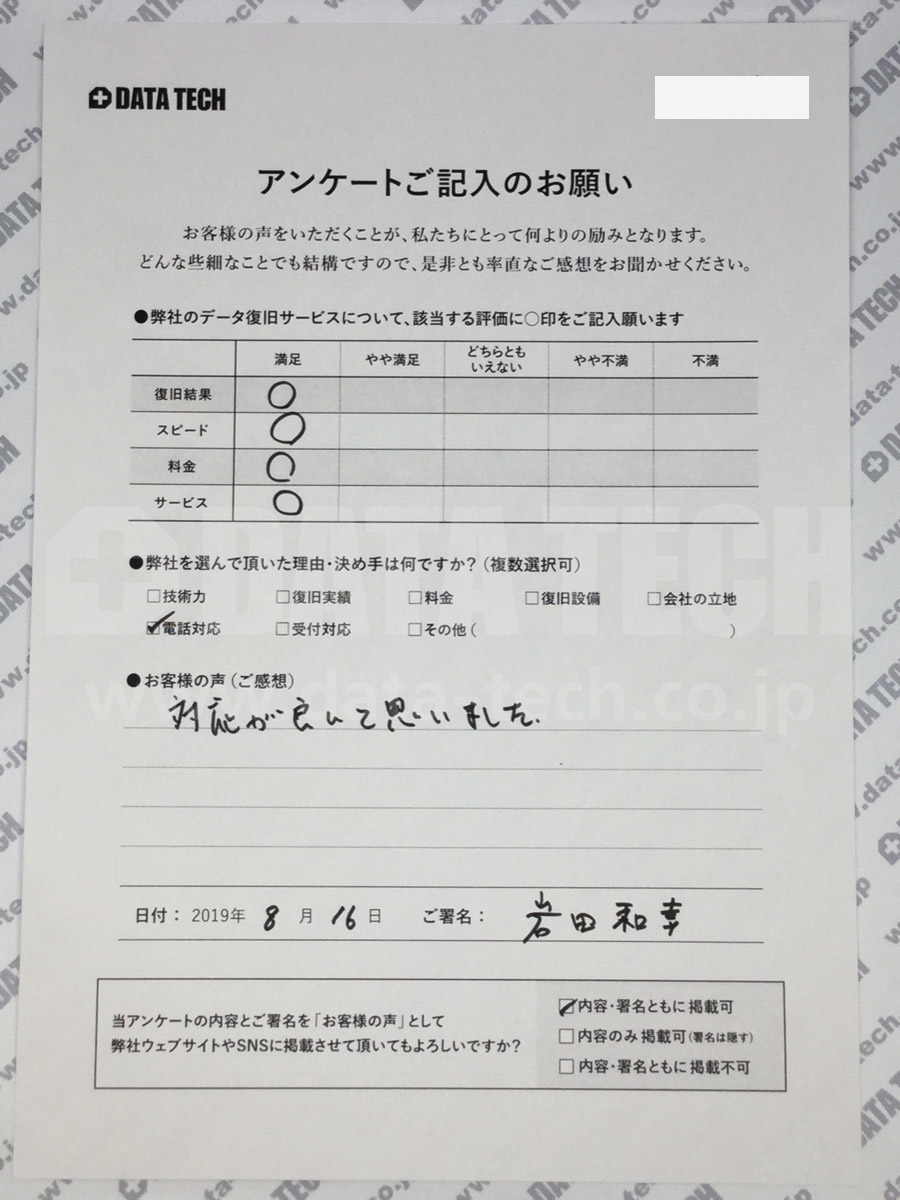 DATA TECH
アンケートご記入のお願い
お客様の声をいただくことが、私たちにとって何よりの励みとなります。
どんな些細なことでも結構ですので、是非とも率直なご感想をお聞かせください。
●弊社のデータ復旧サービスについて、該当する評価に○印をご記入願います
満足 やや満足 どちらとも いえない やや不満 不満
復旧結果 ○
スピード ○
料金 ○
サービス ○
●弊社を選んで頂いた理由・決め手は何ですか?(複数選択可)
□技術力 □復旧実績 □料金 □復旧設備 □会社の立地
☑電話対応 □受付対応 □その他( )
●お客様の声(ご感想)
対応が良いて思いました.
日付: 2019年 8 月 16 日 ご署名: 岩田和幸
当アンケートの内容とご署名を「お客様の声」として
弊社ウェブサイトやSNSに掲載させて頂いてもよろしいですか?
☑内容・署名ともに 掲載可
□内容のみ 掲載可(署名は隠す)
□内容・署名ともに 掲載不可
DATA TECH
www.data-tech.co.jp